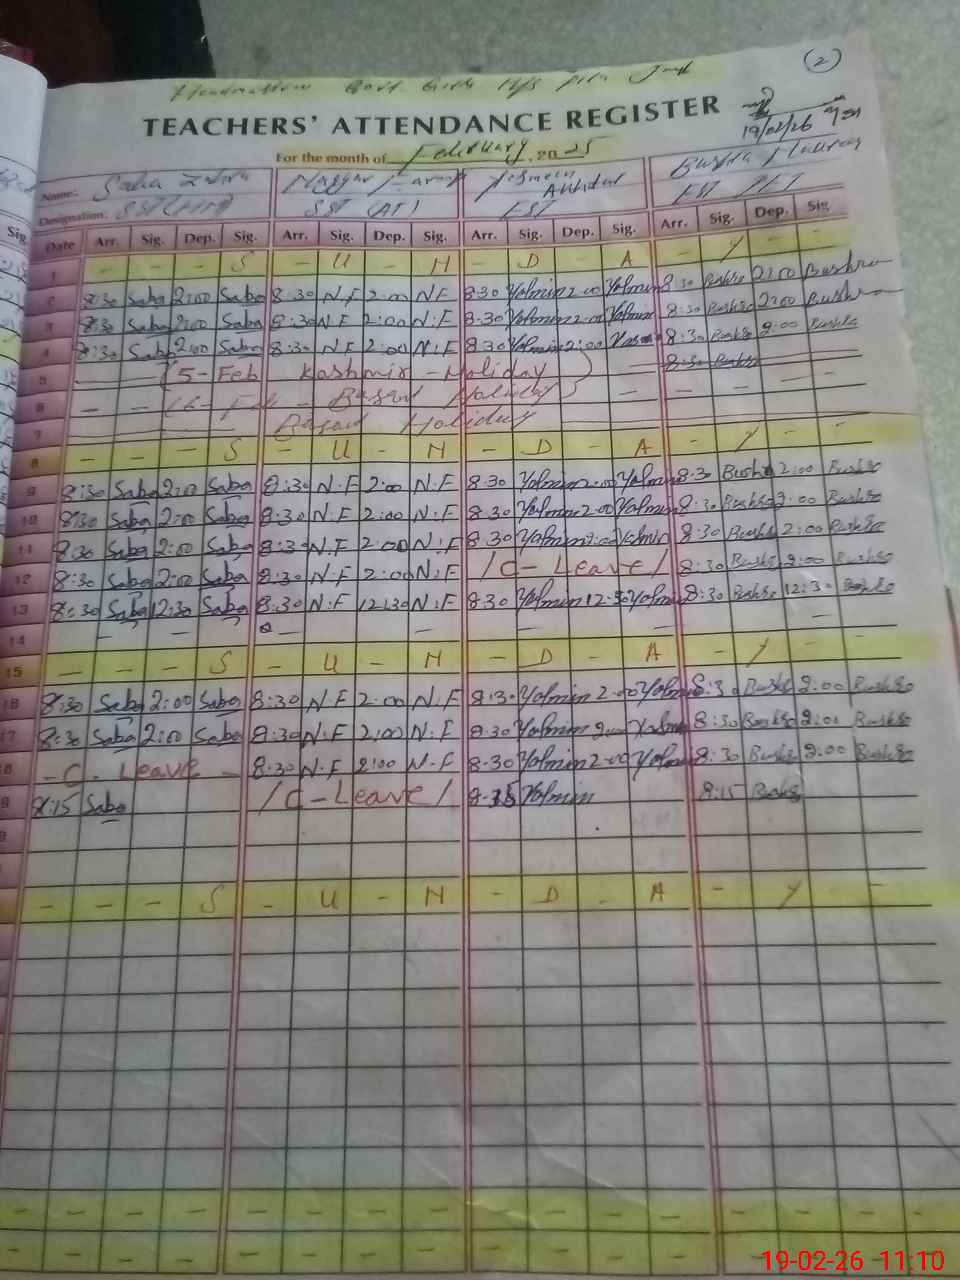 (2)
Govt Girls H/S
TEACHERS' ATTENDANCE REGISTER
19/02/26
For the month of February, 2025
Name: Saba Zahra
Designation: SST SST (AT) EST EST PET
Date Arr. Sig. Dep. Sig. Arr. Sig. Dep. Sig. Arr. Sig. Dep. Sig. Arr. Sig. Dep. Sig.
1 - - - S - U - H - D - A - Y - -
2 8:30 Saba 2:00 Saba 8:30 N.F 2:00 N.F 8:30 Yasmin 2:00 Yasmin 8:30 Bushra 2:00 Bushra
3 8:30 Saba 2:00 Saba 8:30 N.F 2:00 N.F 8:30 Yasmin 2:00 Yasmin 8:30 Bushra 2:00 Bushra
4 8:30 Saba 2:00 Saba 8:30 N.F 2:00 N.F 8:30 Yasmin 2:00 Yasmin 8:30 Bushra 2:00 Bushra
5 5-Feb Kashmir - Holiday 8:30 Bushra
6 - - 6-Feb - Basant Holiday - - - -
7 Basant Holiday
8 - - - S - U - H - D - A - Y - -
9 8:30 Saba 2:00 Saba 8:30 N.F 2:00 N.F 8:30 Yasmin 2:00 Yasmin 8:30 Bushra 2:00 Bushra
10 8:30 Saba 2:00 Saba 8:30 N.F 2:00 N.F 8:30 Yasmin 2:00 Yasmin 8:30 Bushra 2:00 Bushra
11 8:30 Saba 2:00 Saba 8:30 N.F 2:00 N.F 8:30 Yasmin 2:00 Yasmin 8:30 Bushra 2:00 Bushra
12 8:30 Saba 2:00 Saba 8:30 N.F 2:00 N.F / C- Leave / 8:30 Bushra 2:00 Bushra
13 8:30 Saba 12:30 Saba 8:30 N.F 12:30 N.F 8:30 Yasmin 12:30 Yasmin 8:30 Bushra 12:30 Bushra
14 - - - - - - - -
15 - - - S - U - H - D - A - Y - -
16 8:30 Saba 2:00 Saba 8:30 N.F 2:00 N.F 8:30 Yasmin 2:00 Yasmin 8:30 Bushra 2:00 Bushra
17 8:30 Saba 2:00 Saba 8:30 N.F 2:00 N.F 8:30 Yasmin 2:00 Yasmin 8:30 Bushra 2:00 Bushra
18 - C - Leave - 8:30 N.F 2:00 N.F 8:30 Yasmin 2:00 Yasmin 8:30 Bushra 2:00 Bushra
8:15 Saba / C-Leave / 8:15 Yasmin 8:15 Bushra
- - - S - U - H - D - A - Y -
19-02-26 11:10